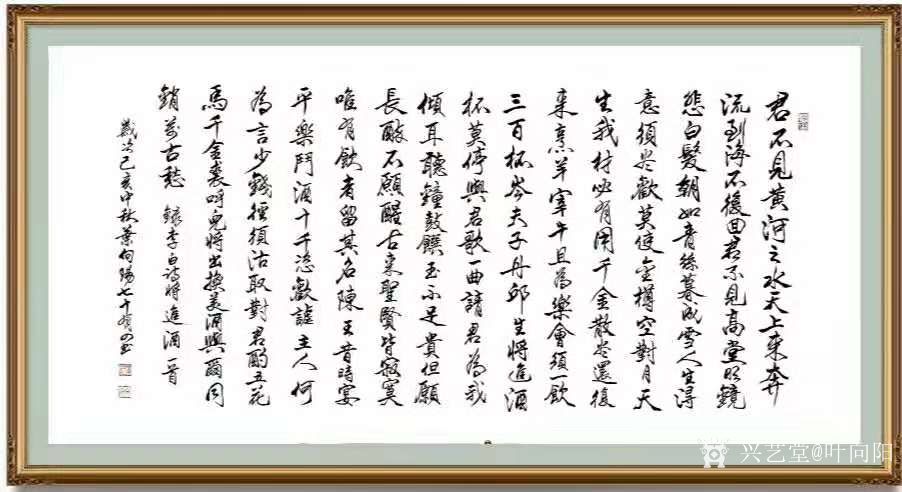 君不見黃河之水天上来奔
流到海不復回君不見高堂明鏡
悲白髮朝如青絲暮成雪人生得
意須尽歡莫使金樽空對月天
生我材必有用千金散尽還復
来烹羊宰牛且為樂會須一飲
三百杯岑夫子丹邱生將進酒
杯莫停與君歌一曲請君為我
傾耳聽鐘鼓饌玉不足貴但願
長醉不願醒古来聖賢皆寂寞
唯有飲者留其名陳王昔時宴
平樂鬥酒十千恣歡謔主人何
為言少錢徑須沽取對君酌五花
馬千金裘呼兒將出換美酒與爾同
銷萬古愁 錄李白詩將進酒一首
歲次己亥中秋葉向陽七十有四書
兴艺堂@叶向阳